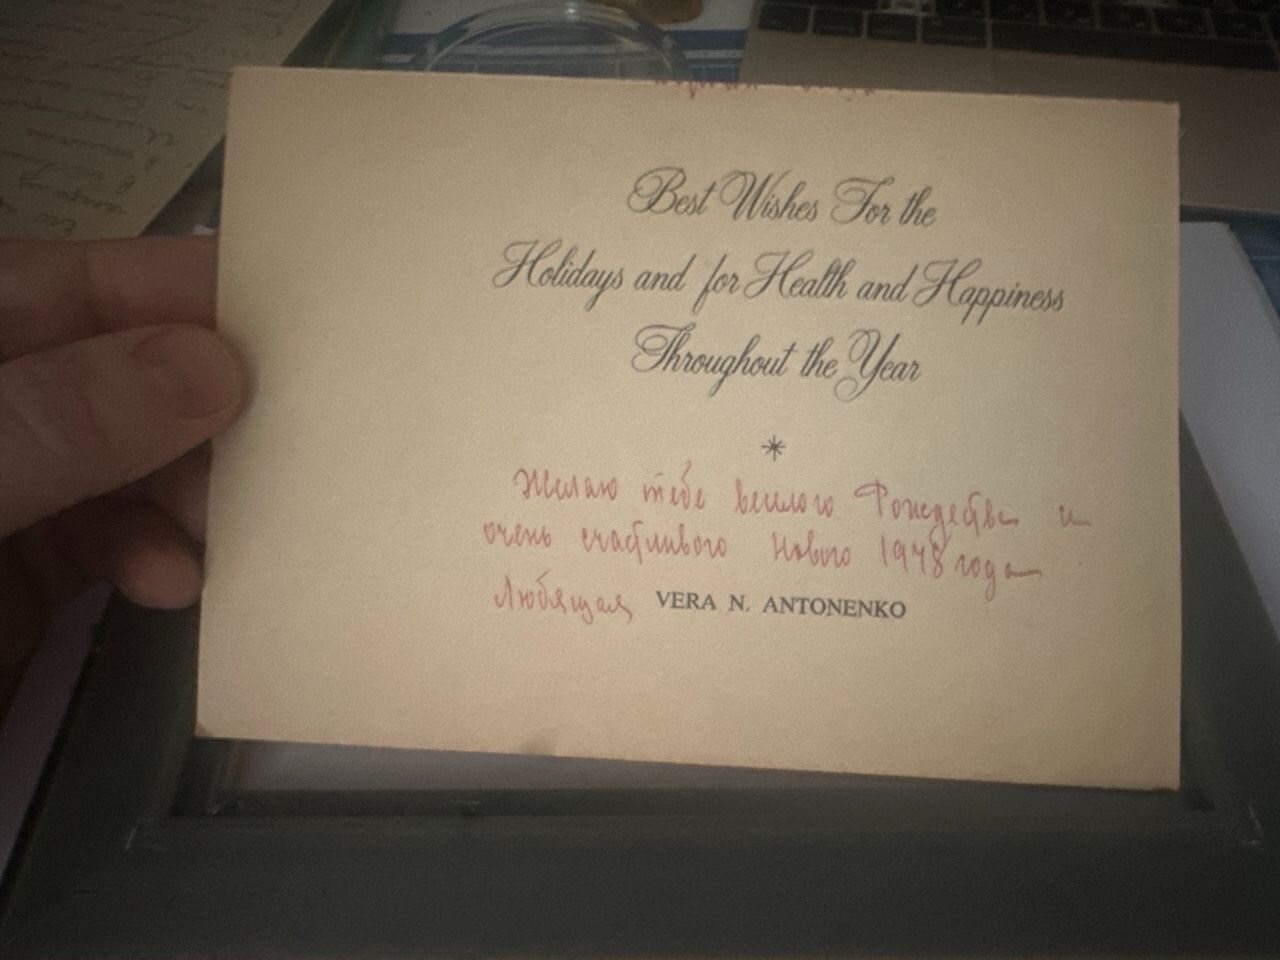 Best Wishes For the
Holidays and for Health and Happiness
Throughout the Year
*
Желаю тебе веселого Рождества и
очень счастливого Нового 1948 года
Любящая VERA N. ANTONENKO